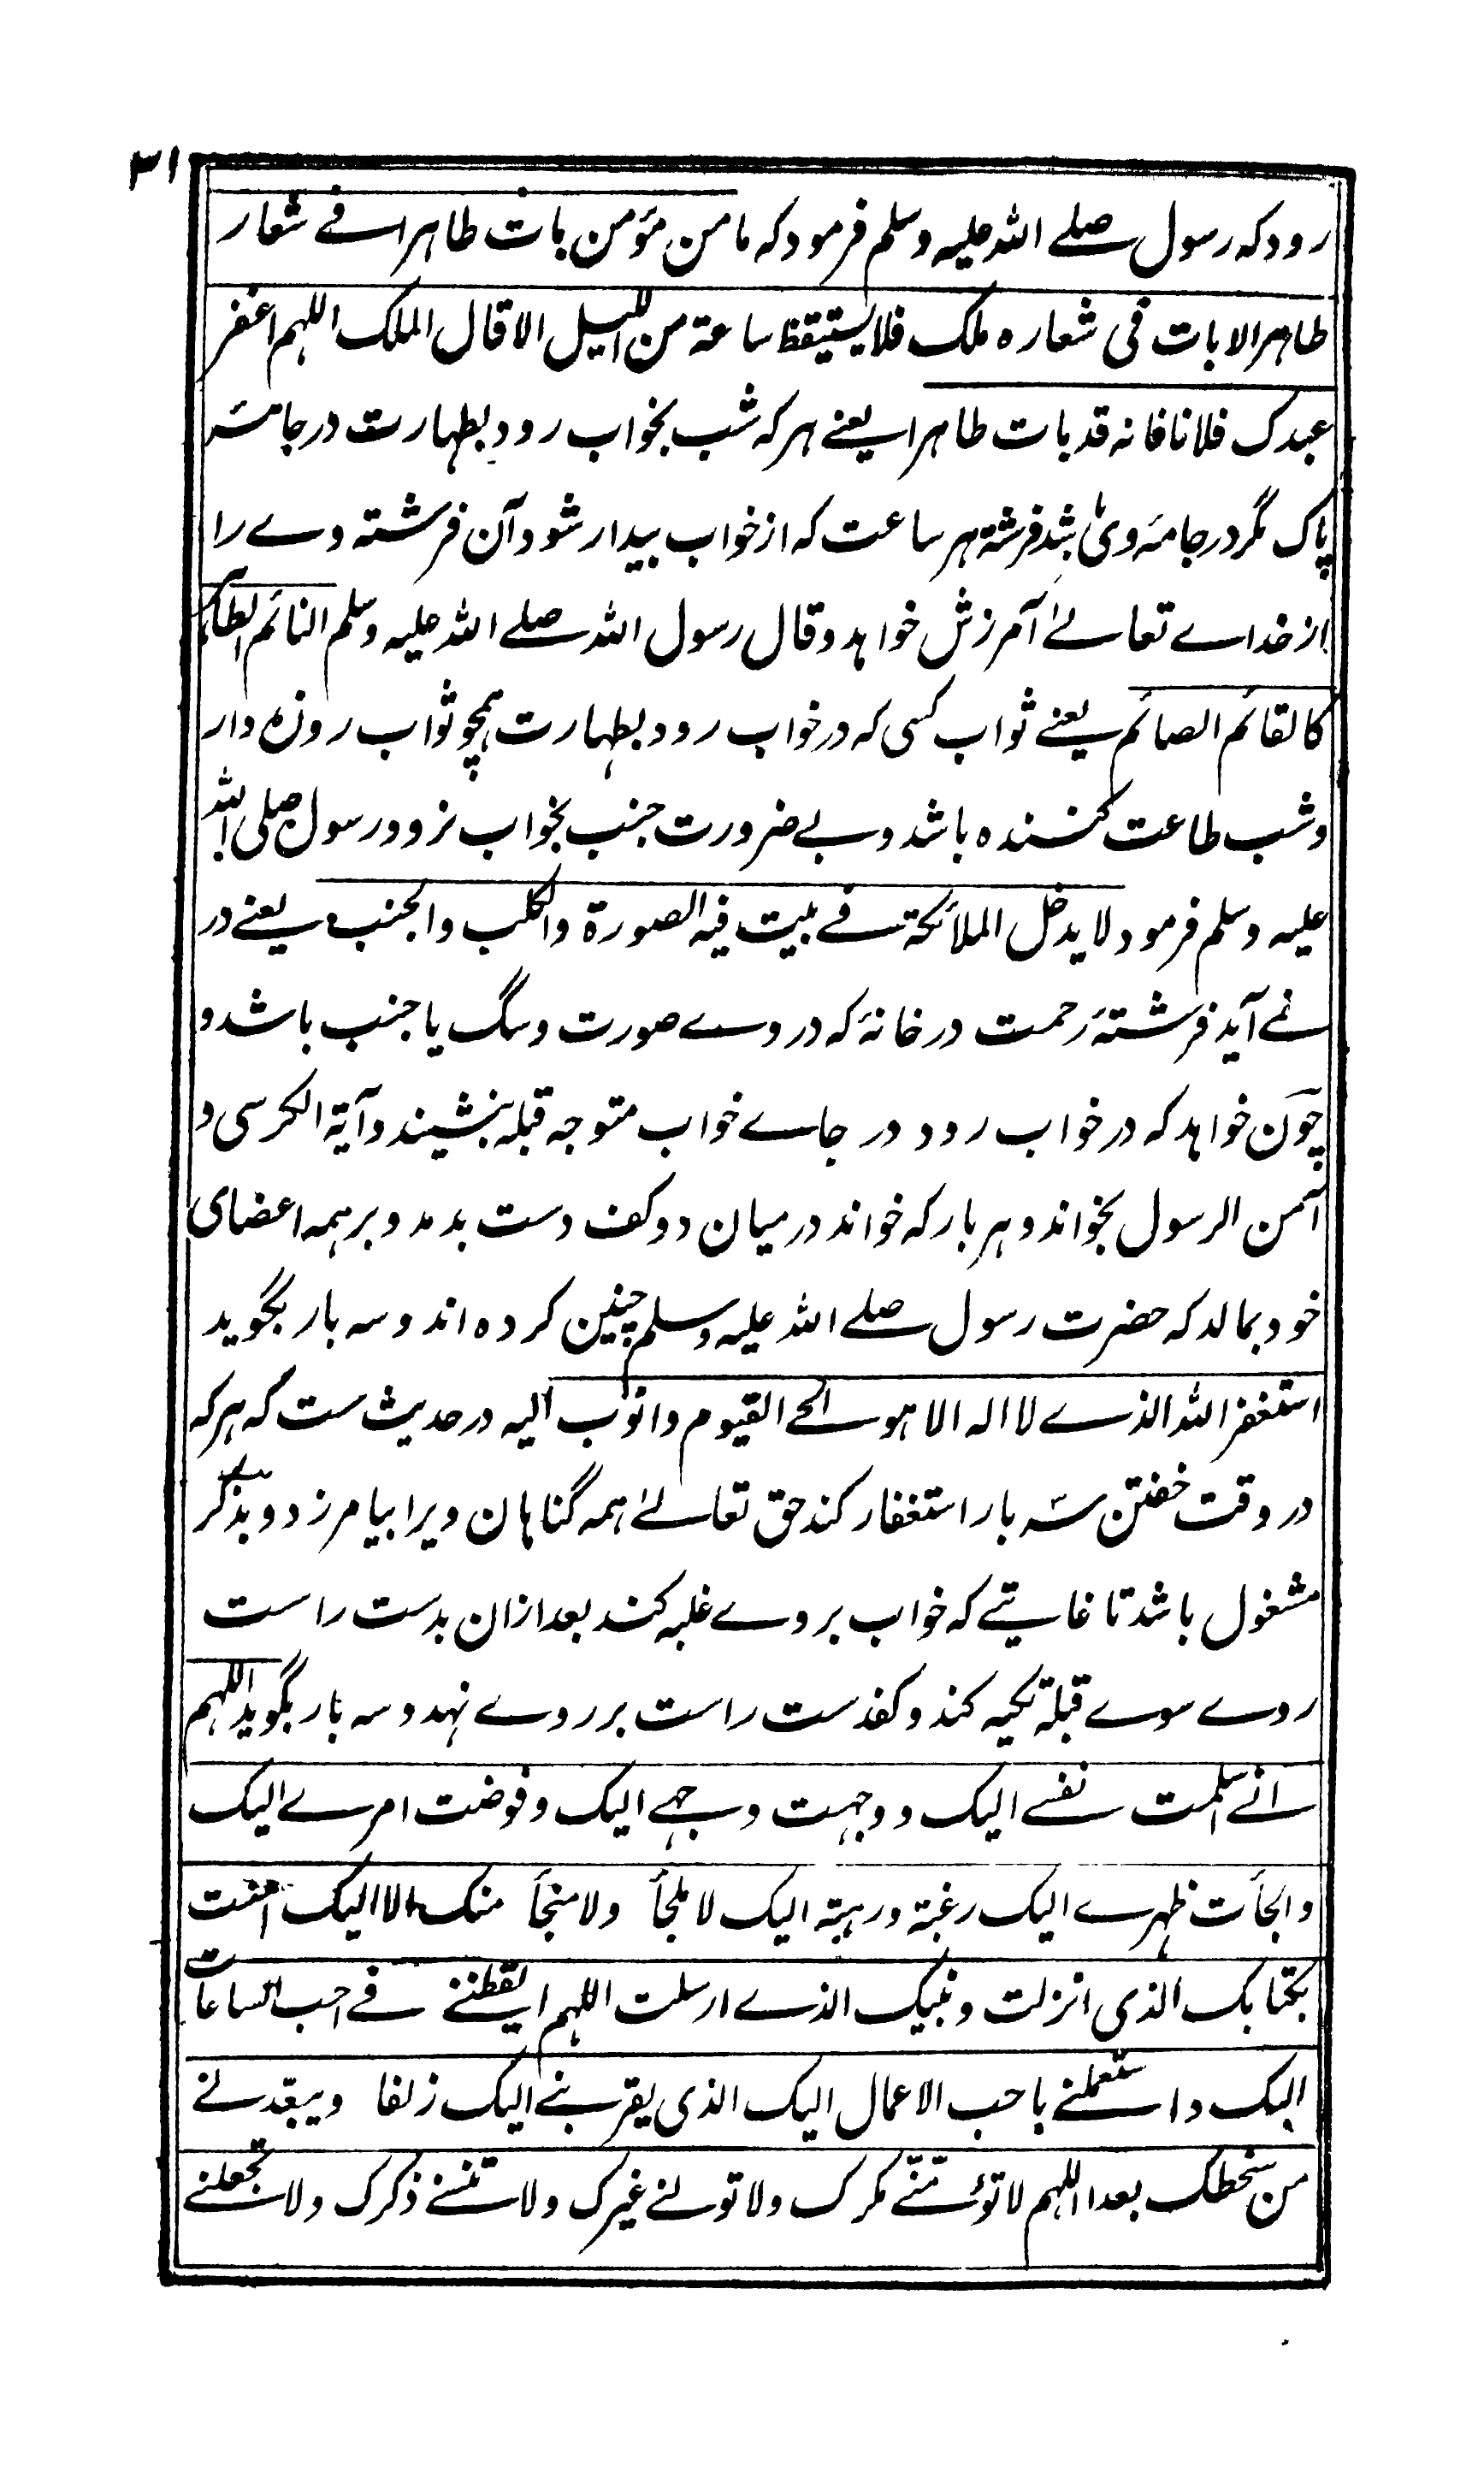 ۳۱
رود که رسول صلے اللہ علیہ وسلم فرمود که مامن مؤمن بات طاهرا فے شعار
طاهر الا بات فی شعاره ملک فلا یستیقظ ساعة من اللیل الا قال الملک اللہم اغفر
عبدک فلانا فانه قد بات طاهرا یعنے هر که شب بخواب رود بطهارت در جامۂ
پاک مگر در جامۂ وی باشد فرشته هر ساعت که از خواب بیدار شود آن فرشته وے را
از خداے تعالےٰ آمرزش خواهد وقال رسول اللہ صلے اللہ علیہ وسلم النائم الطاهر
کالقائم الصائم یعنے ثواب کسی که در خواب رود بطهارت همچو ثواب روزه دار
وشب طاعت کننده باشد وبے ضرورت جنب بخواب نرود رسول صلی اللہ
علیہ وسلم فرمود لا یدخل الملائکة فے بیت فیه الصورة والکلب والجنب یعنے در
نمے آید فرشتۂ رحمت در خانۂ که در وے صورت وسگ یا جنب باشد و
چون خواهد که در خواب رود در جاے خواب متوجه قبله بنشیند وآیة الکرسی و
آمن الرسول بخواند و هر بار که خواند در میان دو کف دست بدمد و بر همه اعضای
خود بمالد که حضرت رسول صلے اللہ علیہ وسلم چنین کرده اند و سه بار بگوید
استغفر اللہ الذے لا اله الا هو الحے القیوم واتوب الیه در حدیث ست که هر که
در وقت خفتن سه بار استغفار کند حق تعالےٰ همه گناهان ویرا بیامرزد و بذکر
مشغول باشد تا غایتے که خواب بر وے غلبه کند بعد ازان بدست راست
روے سوے قبله تکیه کند و کفدست راست بر روے نهد و سه بار بگوید اللہم
انے اسلمت نفسے الیک و وجهت وجهے الیک و فوضت امرے الیک
والجأت ظهرے الیک رغبة ورهبة الیک لا ملجأ ولا منجأ منک الا الیک آمنت
بکتابک الذی انزلت ونبیک الذے ارسلت اللہم ایقظنے فے احب الساعات
الیک واستعملنے باحب الاعمال الیک الذی یقربنے الیک زلفا ویبعّدنے
من سخطک بعدا اللہم لا تؤمنّنے مکرک ولا تولنے غیرک ولا تنسنے ذکرک ولا تجعلنے